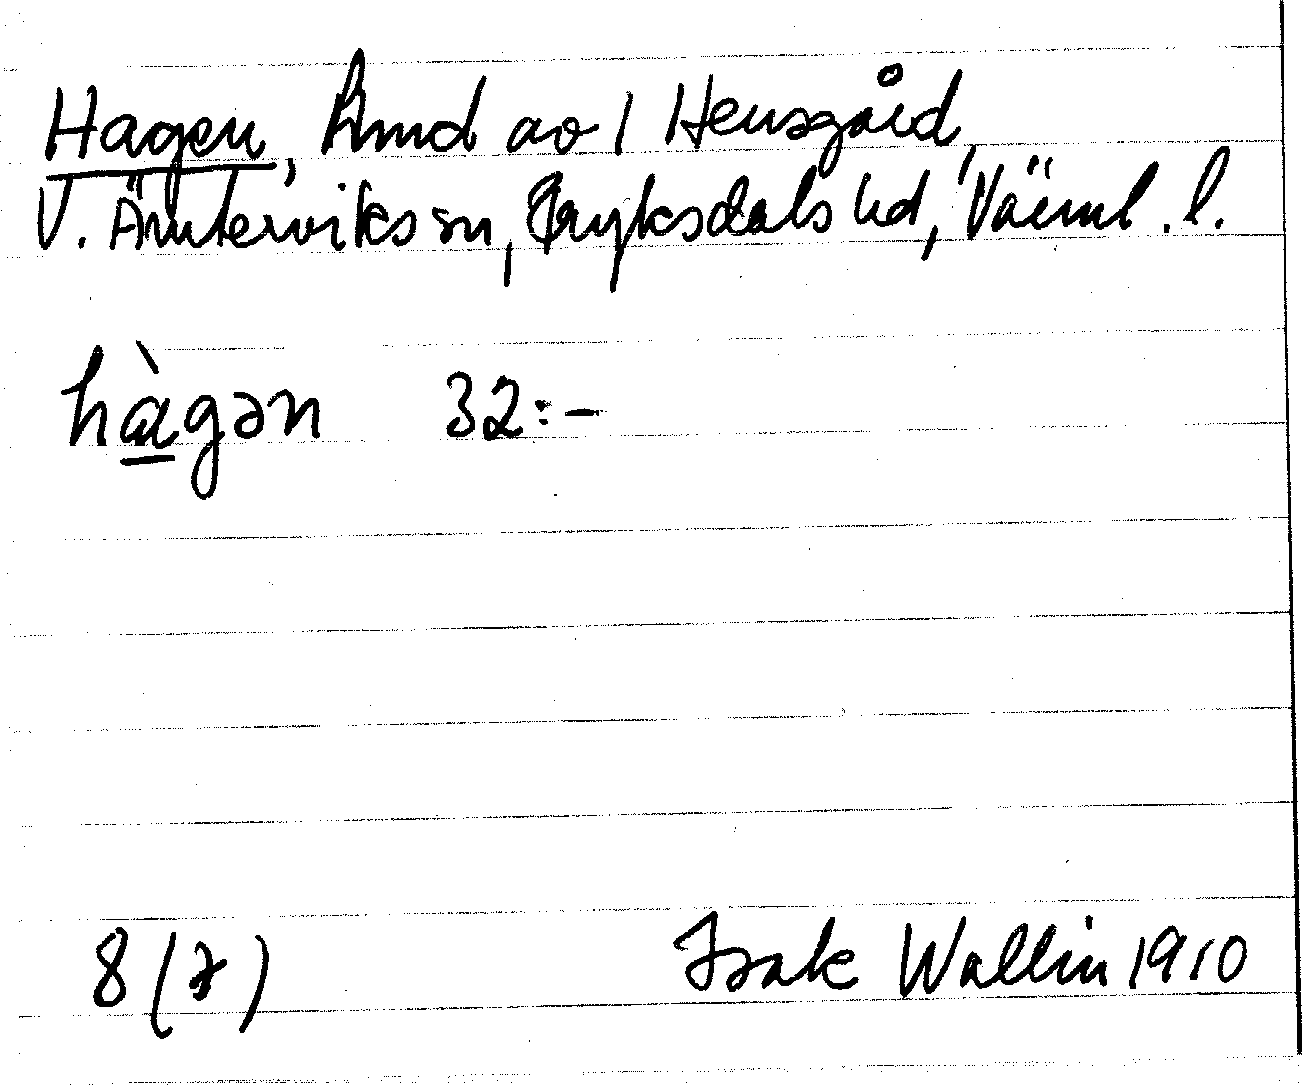 Hagen, hmd av 1 Hensgård,
V. Ämterviks sn, Fryksdals hd, Värml. l.
hàgən 32:-
8 (7)
Isak Wallin 1910